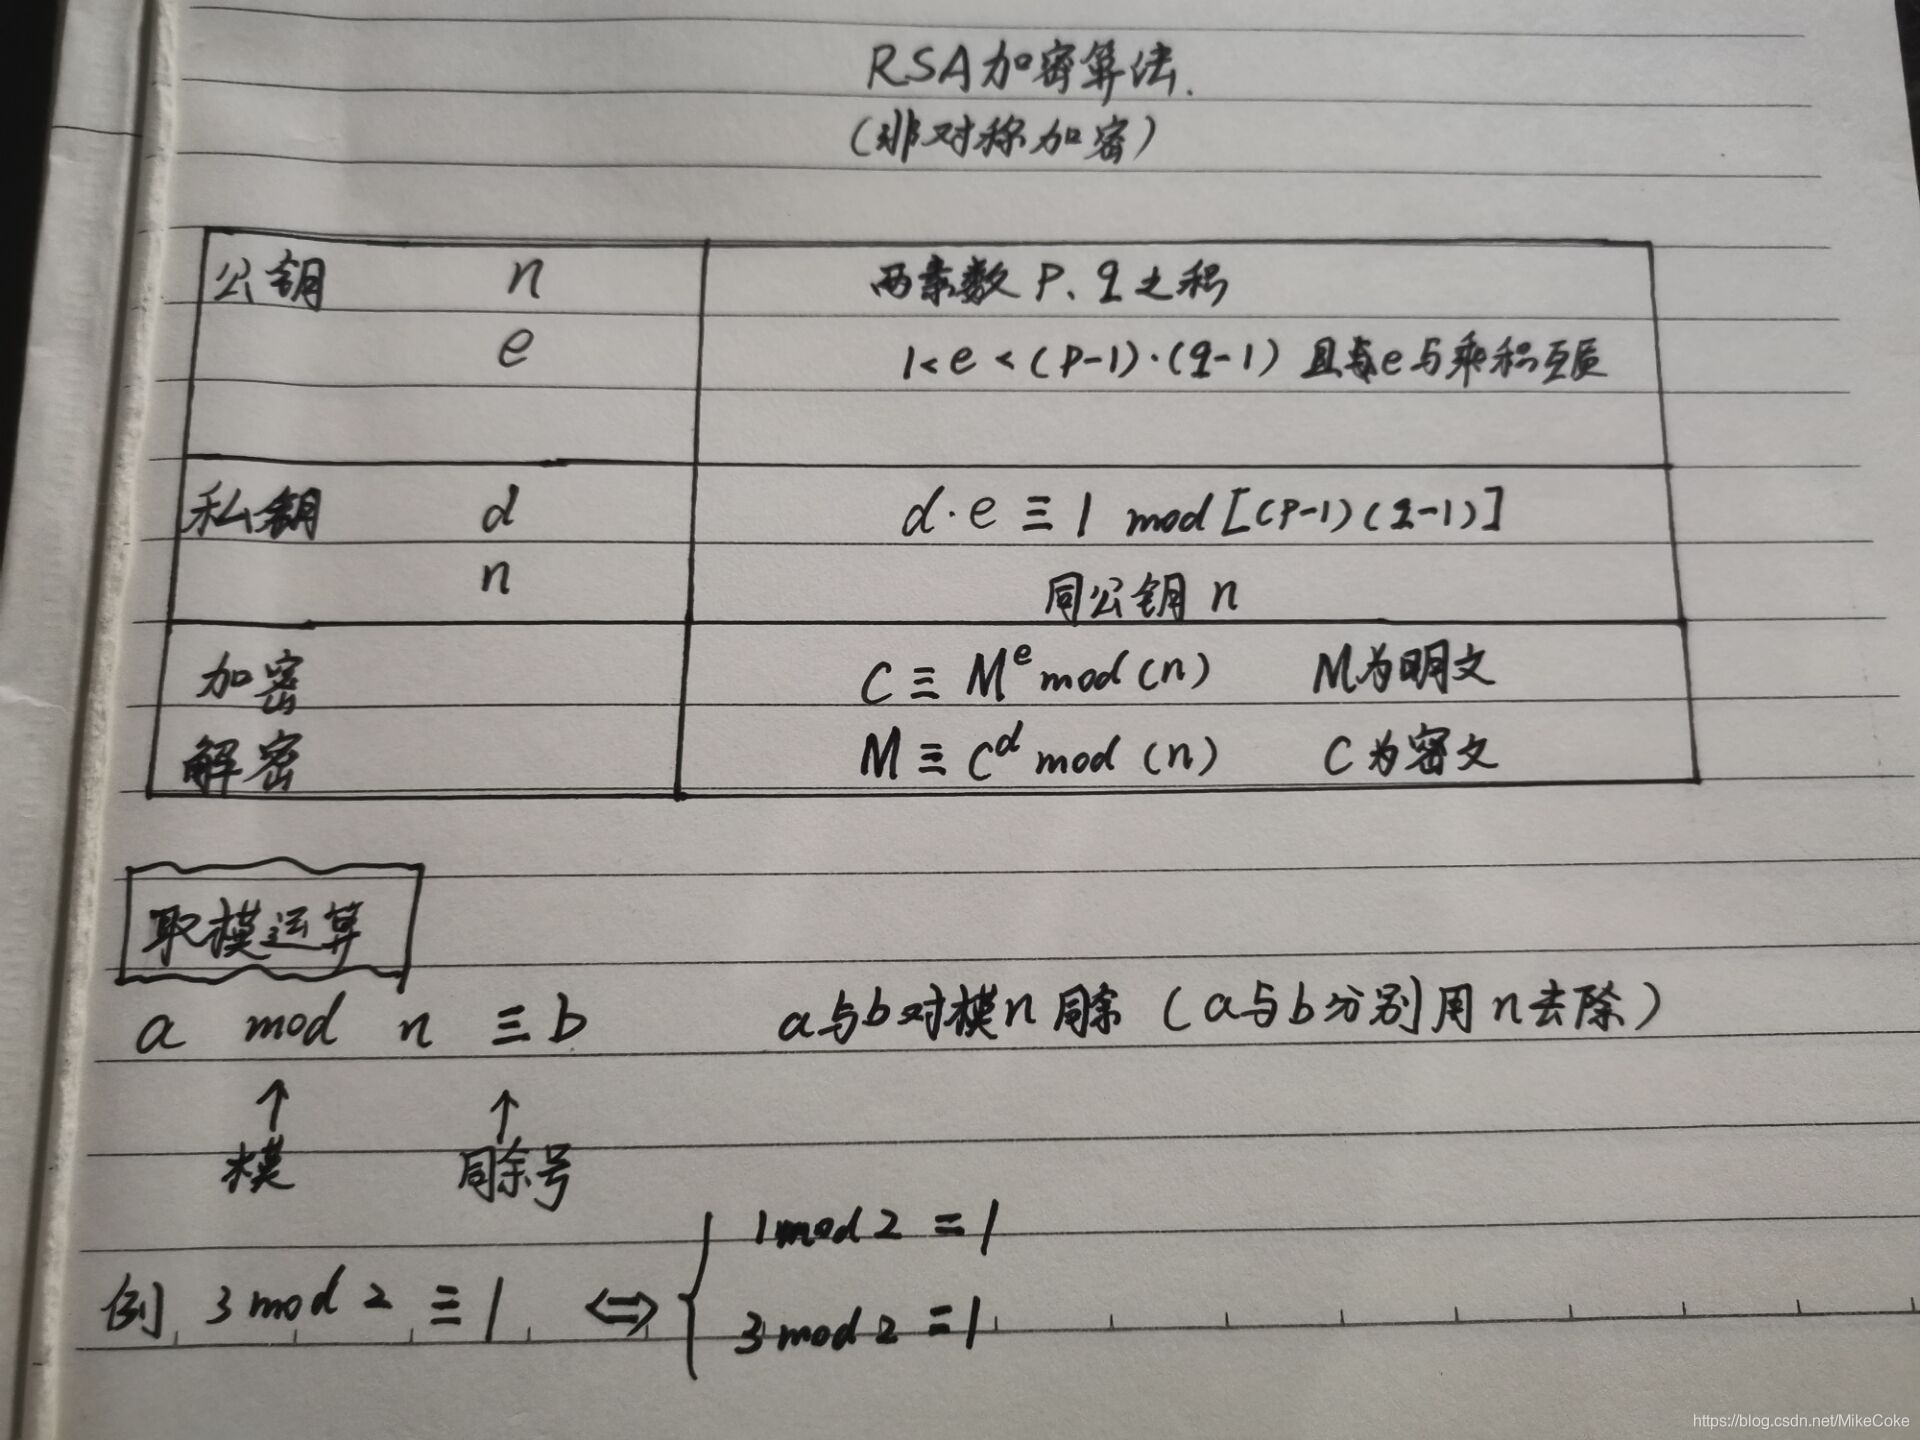 RSA加密算法.
(非对称加密)
公钥 n 两素数 P、q 之积
e 1<e<(P-1)·(q-1) 且与e与乘积互质
私钥 d d·e ≡ 1 mod [(P-1)(q-1)]
n 同公钥 n
加密 C ≡ M^e mod (n) M为明文
解密 M ≡ C^d mod (n) C为密文
取模运算
a mod n ≡ b a与b对模n同余 (a与b分别用n去除)
↑ ↑
模 同余号
1 mod 2 = 1
例 3 mod 2 ≡ 1 ⇔ {
3 mod 2 = 1
https://blog.csdn.net/MikeCoke